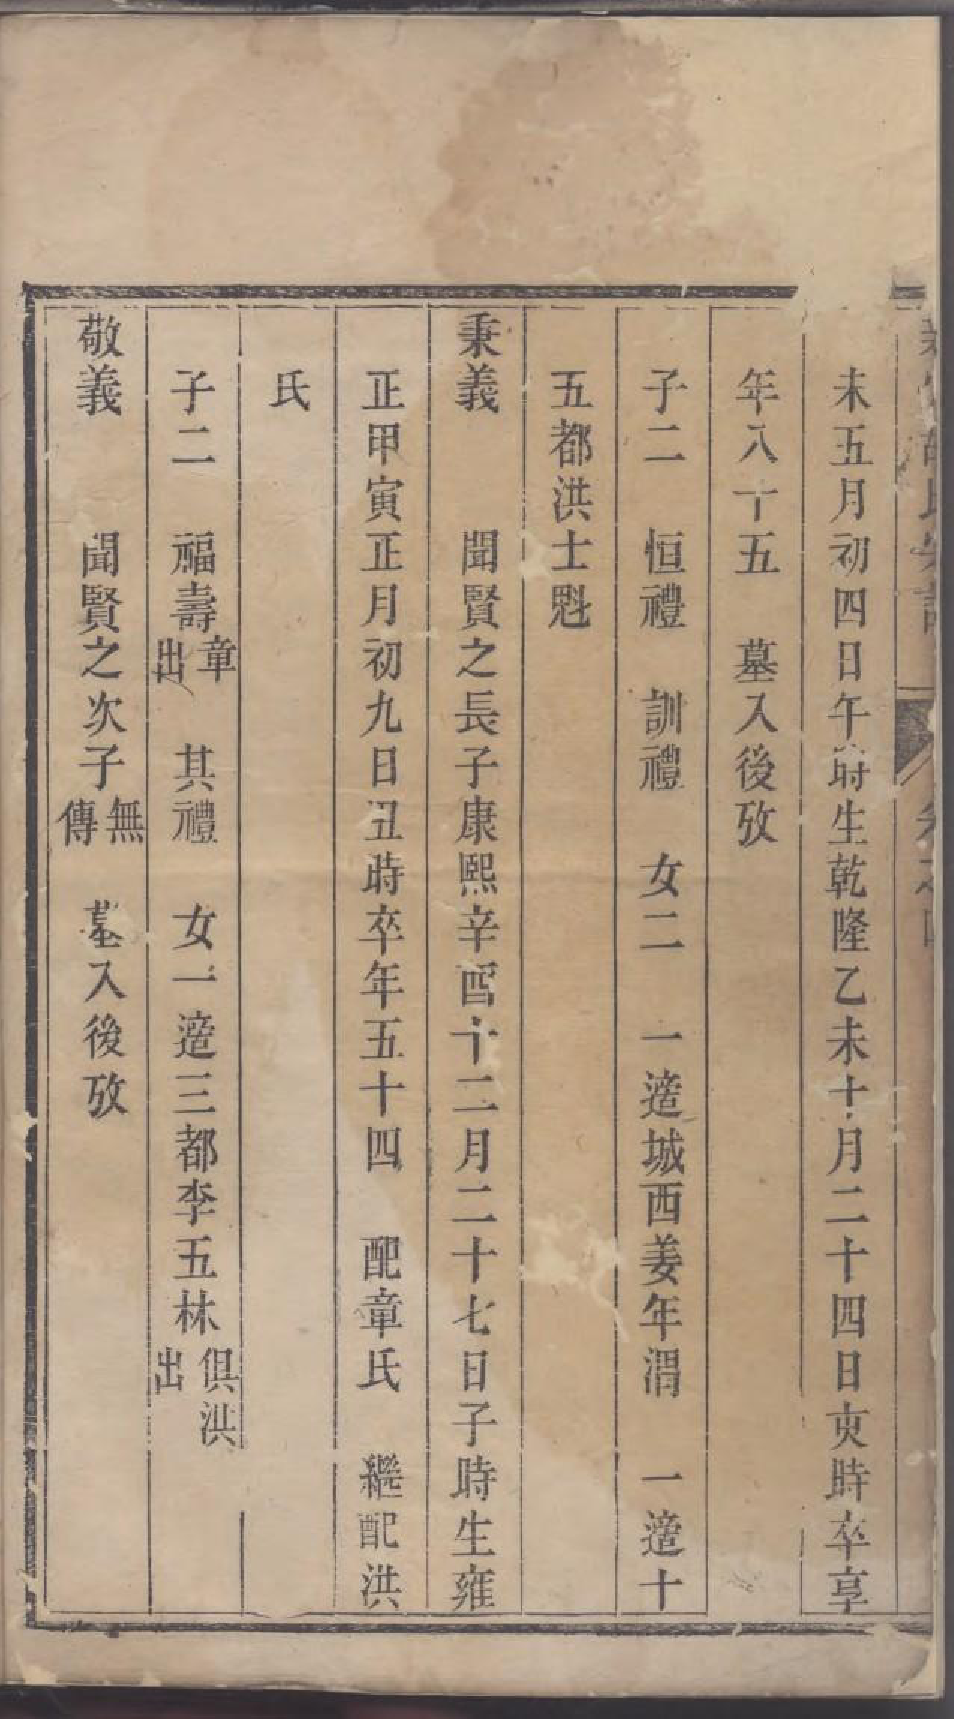 未五月初四日午時生乾隆乙未十月二十四日寅時卒享
年八十五　墓入後攷
子二　恒禮　訓禮　女二　一適城西姜年渭　一適十
五都洪士魁
秉義　聞賢之長子康熙辛酉十二月二十七日子時生雍
正甲寅正月初九日丑時卒年五十四　配章氏　繼配洪
氏
子二　福壽章出　其禮　女一適三都李五林俱洪出
敬義　聞賢之次子無傳　墓入後攷